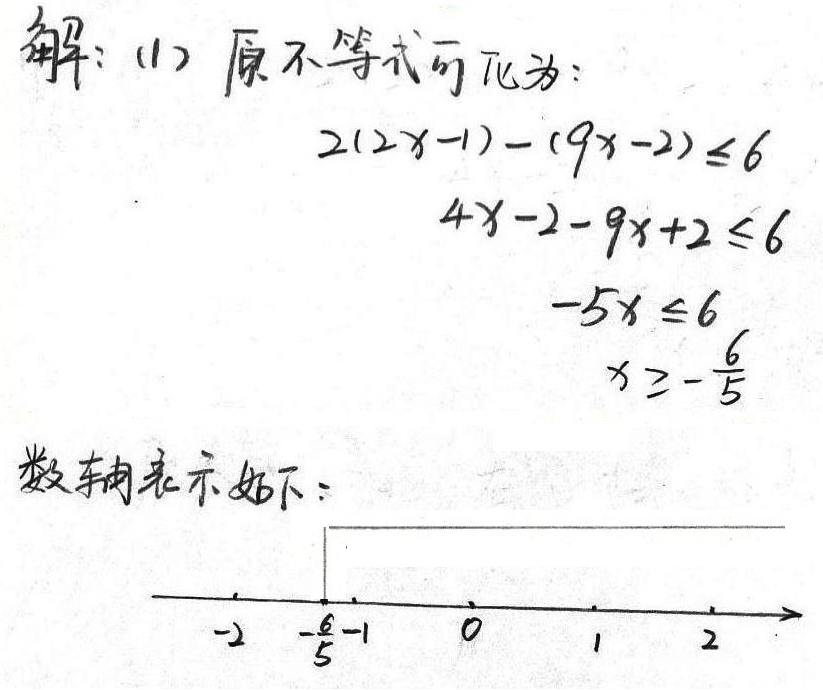 解：(1) 原不等式可化为：
2(2x-1)-(9x-2)≤6
4x-2-9x+2≤6
-5x≤6
x≥-6/5
数轴表示如下：
-2 -6/5 -1 0 1 2